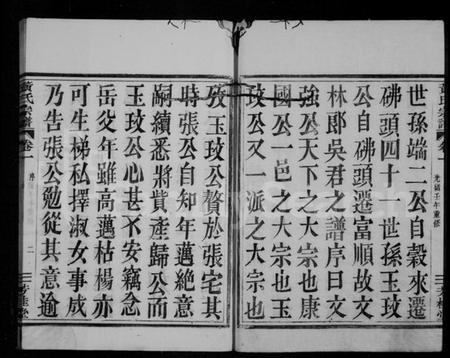 黃氏宗譜 卷一 光緒壬午重修
世孫端二公自穀來遷
佛頭四十一世孫玉玫
公自佛頭遷富順故文
林郎吳君之譜序曰文
強公天下之大宗也康
國公一邑之大宗也玉
玫公又一派之大宗也
攷玉玫公贅於張宅其
時張公自知年邁絶意
嗣續悉將貲產歸公而
玉玫公心甚不安竊念
岳父年雖高邁枯楊亦
可生梯私擇淑女事成
乃告張公勉從其意逾
黃氏宗譜 卷一 二